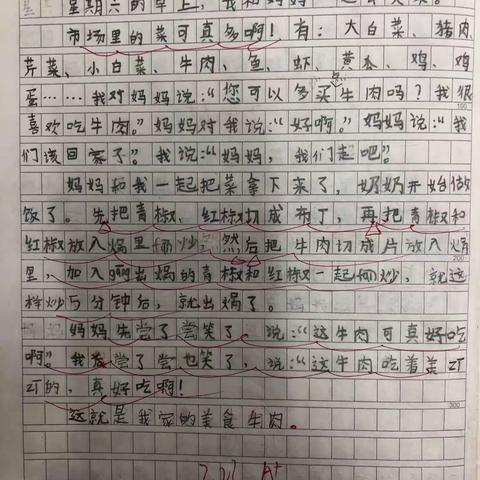 星期六的早上，我和妈妈一起去买菜。
市场里的菜可真多啊！有：大白菜、猪肉、
芹菜、小白菜、牛肉、鱼、虾、黄瓜、鸡、鸡
蛋……我对妈妈说：“您可以多买点牛肉吗？我很
100
喜欢吃牛肉。”妈妈对我说：“好啊。”妈妈说：“我
们该回家了”。我说：“妈妈，我们走吧”。
妈妈和我一起把菜拿下来了，奶奶开始做
饭了。先把青椒、红椒切成布丁，再把青椒和
红椒放入锅里炒，然后把牛肉切成片放入锅
200
里，加入出锅的青椒和红椒一起炒，就这
样炒5分钟后，就出锅了。
妈妈先尝了尝笑了，说：“这牛肉可真好吃
啊。”我后尝了尝也笑了，说：“这牛肉吃着美
的，真好吃啊！
300
这就是我家的美食牛肉。
A+